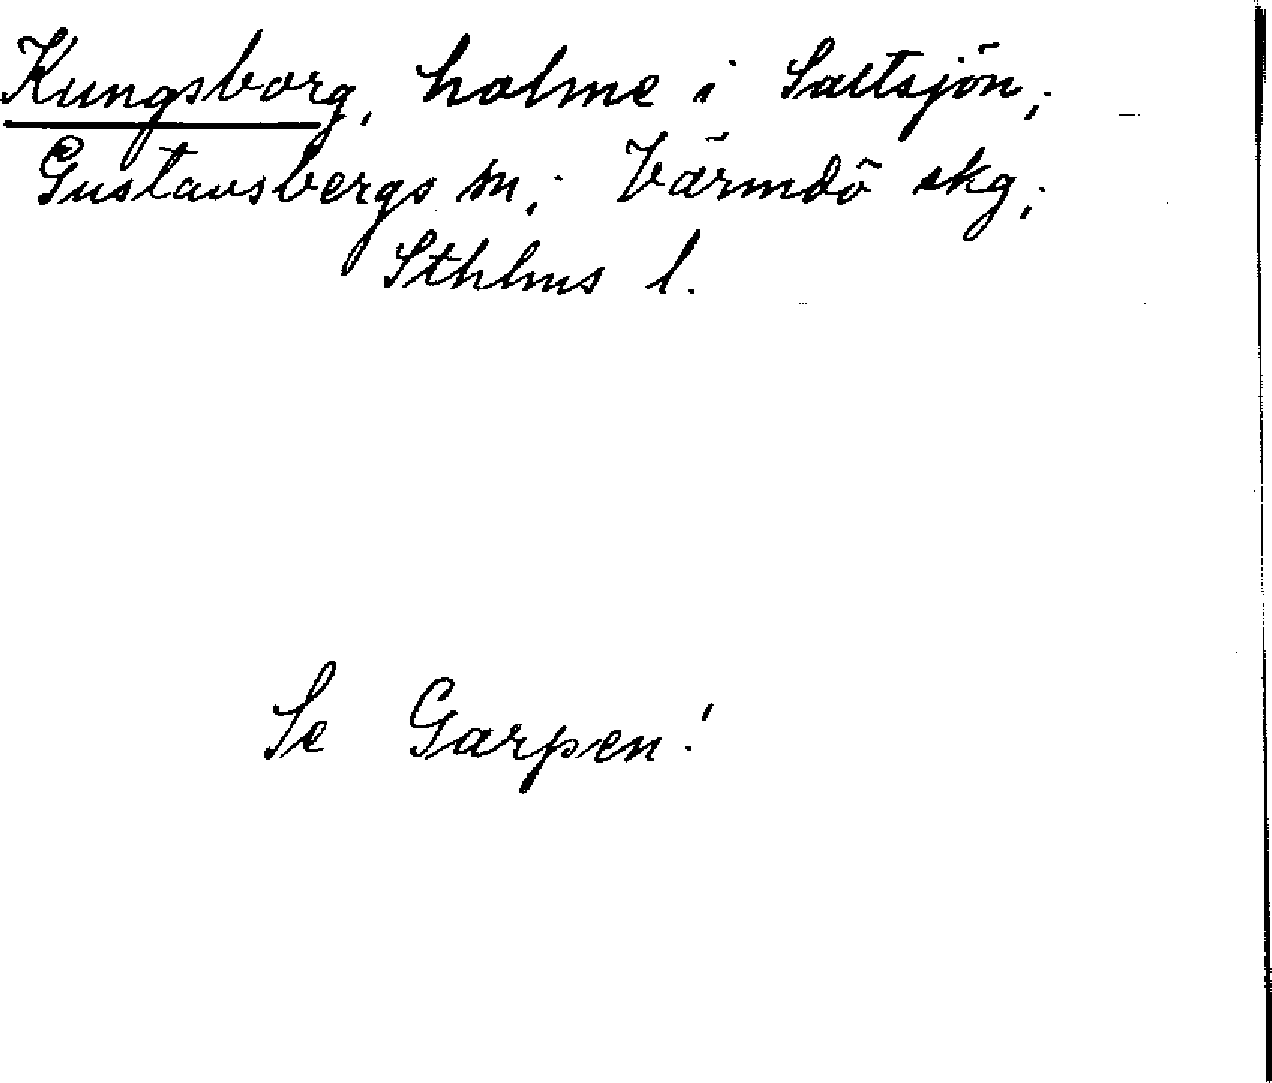 Kungsborg, holme i Saltsjön;
Gustavsbergs sn; Värmdö skg;
Sthlms l.
Se Garpen!